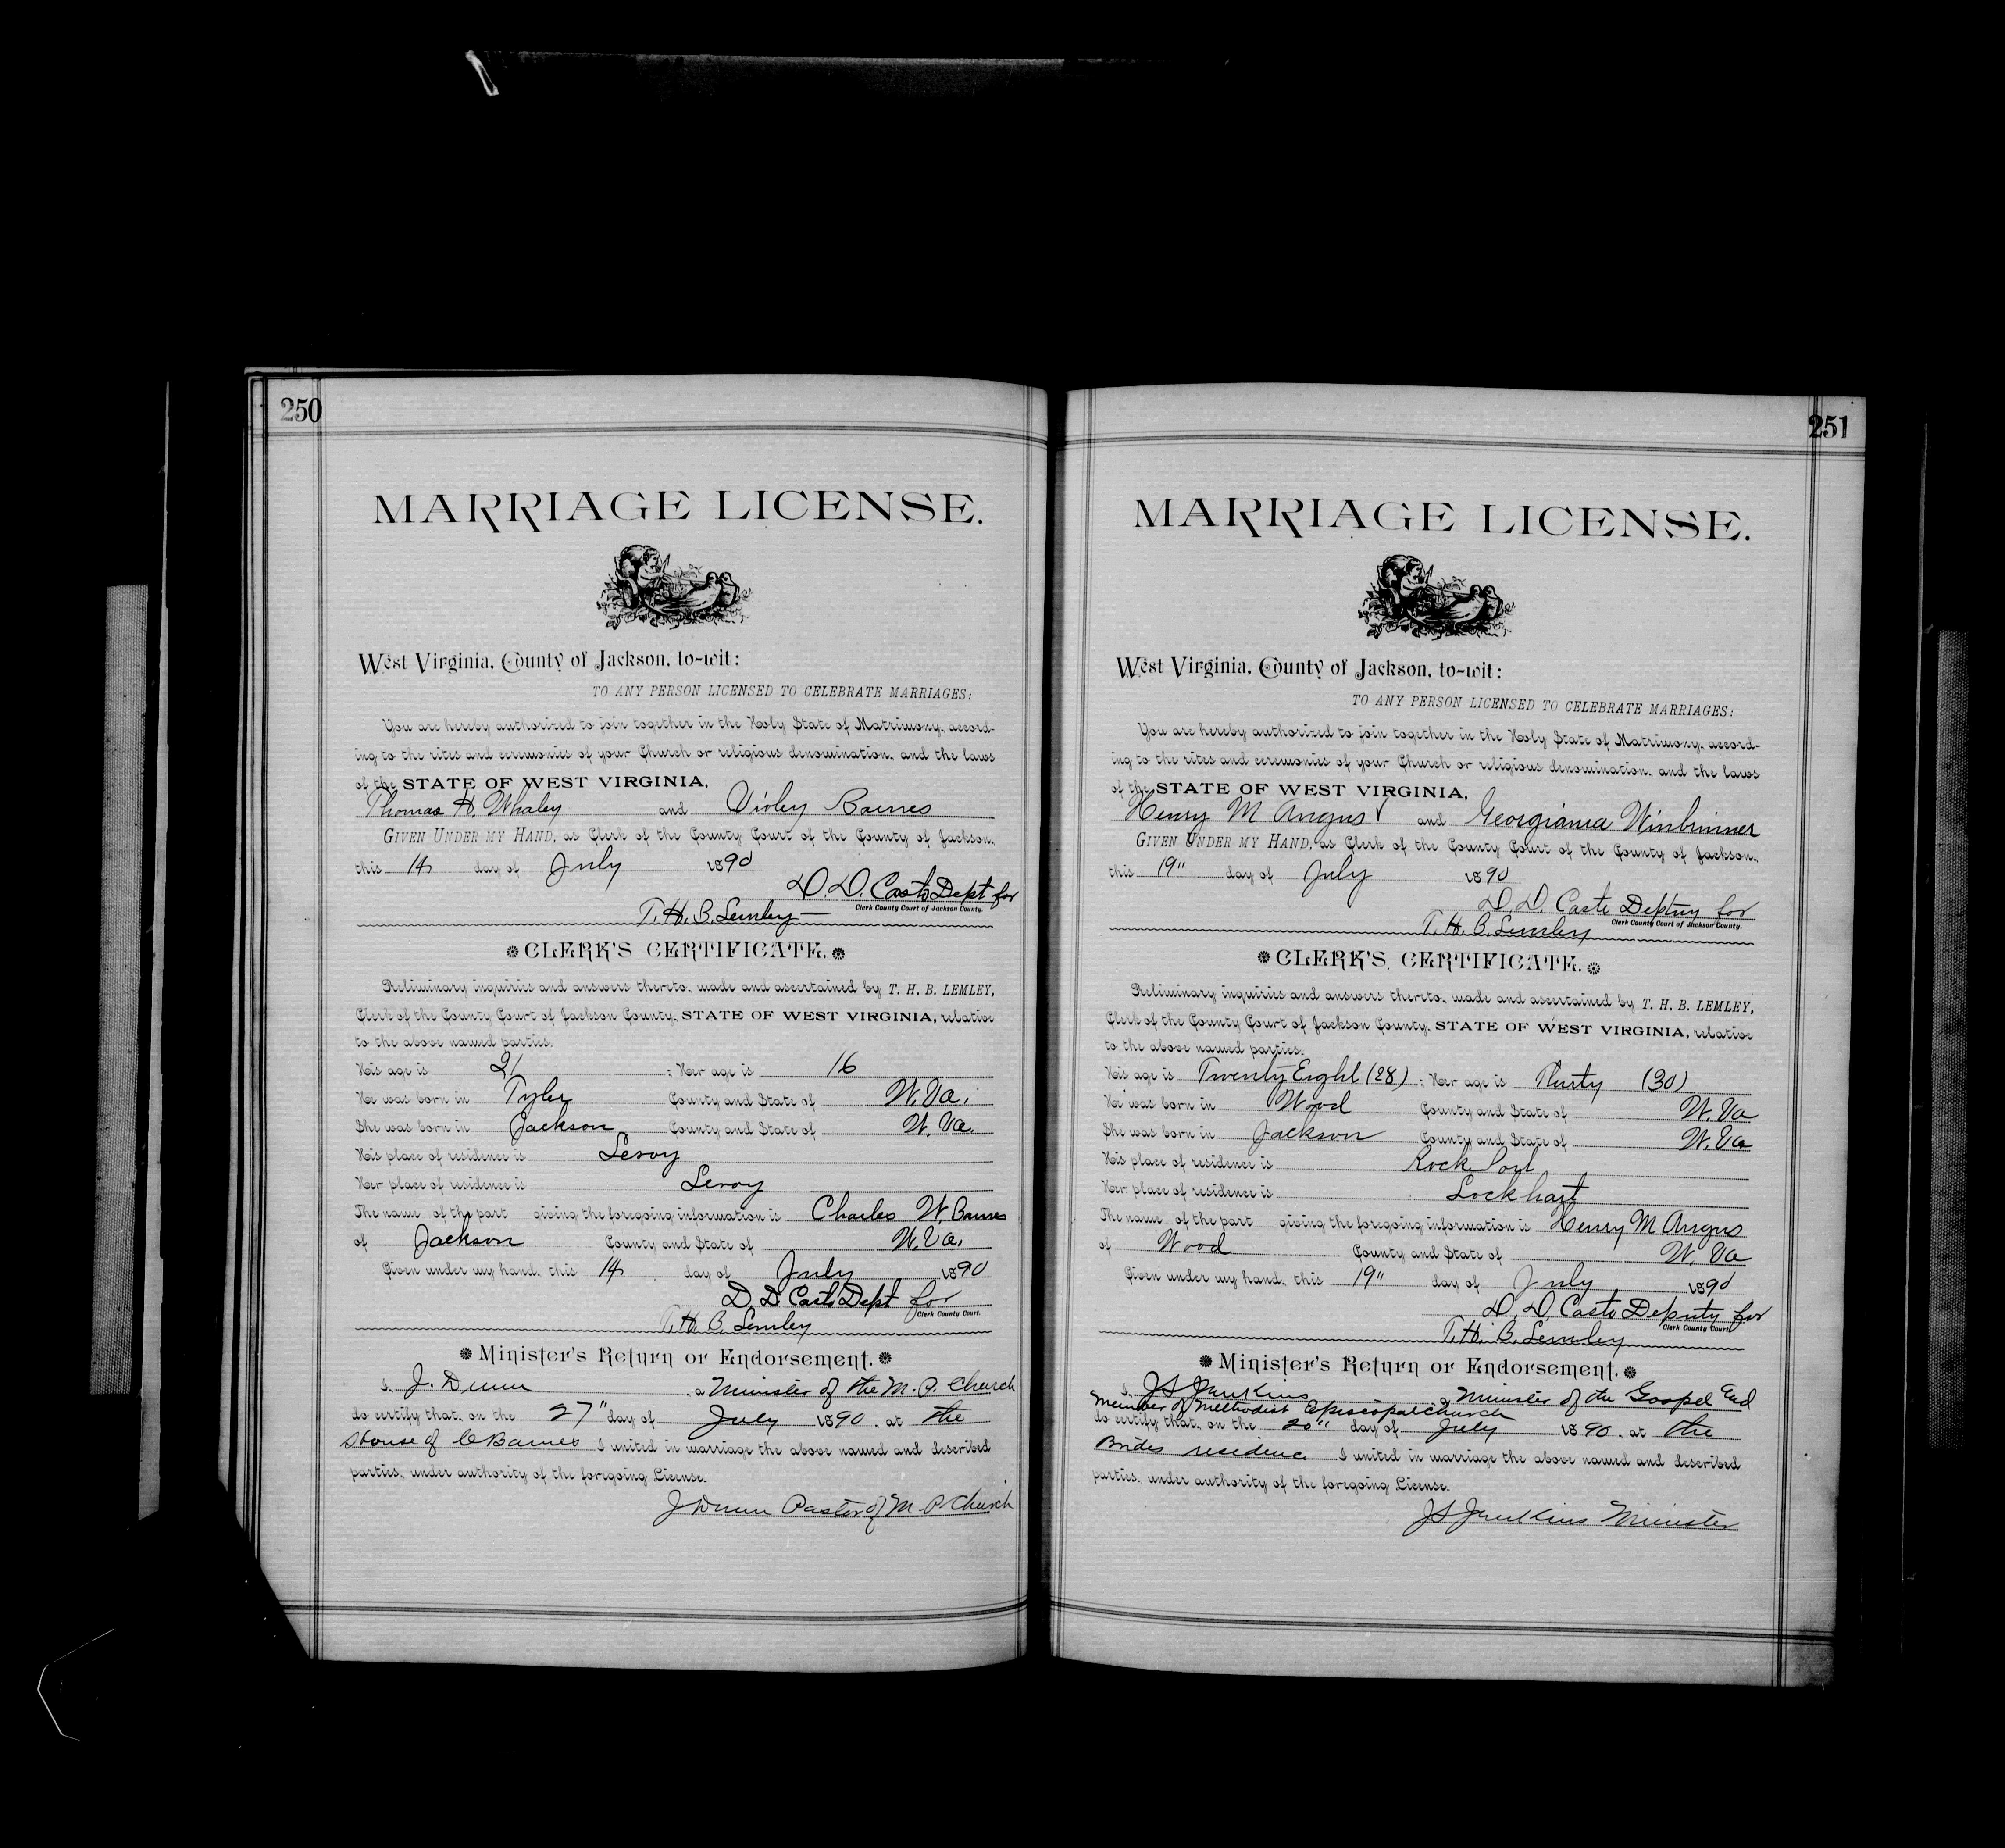 250
MARRIAGE LICENSE.
West Virginia, County of Jackson, to-wit:
TO ANY PERSON LICENSED TO CELEBRATE MARRIAGES:
You are hereby authorized to join together in the Holy State of Matrimony, accord-
ing to the rites and ceremonies of your Church or religious denomination, and the laws
of the STATE OF WEST VIRGINIA,
Thomas H. Whaley and Barnes
GIVEN UNDER MY HAND, as Clerk of the County Court of the County of Jackson,
this 14 day of July 1890
D. D. Casto Dept for
Clerk County Court of Jackson County.
T. H. B. Lemley
CLERK'S CERTIFICATE.
Preliminary inquiries and answers thereto, made and ascertained by T. H. B. LEMLEY,
Clerk of the County Court of Jackson County, STATE OF WEST VIRGINIA, relative
to the above named parties.
His age is 21 : Her age is 16
He was born in Tyler County and State of W. Va.
She was born in Jackson County and State of W. Va.
His place of residence is Leroy
Her place of residence is Leroy
The name of the part giving the foregoing information is Charles W. Barnes
of Jackson County and State of W. Va.
Given under my hand, this 14 day of July 1890
D. D. Casto Dept for
Clerk County Court.
T. H. B. Lemley
Minister's Return or Endorsement.
I, J. Dunn, a Minister of the M. P. Church
do certify that, on the 27" day of July 1890, at the
House of C Barnes I united in marriage the above named and described
parties, under authority of the foregoing License.
J Dunn Pastor of M. P. Church
251
MARRIAGE LICENSE.
West Virginia, County of Jackson, to-wit:
TO ANY PERSON LICENSED TO CELEBRATE MARRIAGES:
You are hereby authorized to join together in the Holy State of Matrimony, accord-
ing to the rites and ceremonies of your Church or religious denomination, and the laws
of the STATE OF WEST VIRGINIA,
Henry M Angus ✓ and Georgiania Winbrinner
GIVEN UNDER MY HAND, as Clerk of the County Court of the County of Jackson,
this 19" day of July 1890
D. D. Casto Deptuy for
Clerk County Court of Jackson County.
T. H. B. Lemley
CLERK'S CERTIFICATE.
Preliminary inquiries and answers thereto, made and ascertained by T. H. B. LEMLEY,
Clerk of the County Court of Jackson County, STATE OF WEST VIRGINIA, relative
to the above named parties.
His age is Twenty Eight (28) : Her age is Thirty (30)
He was born in Wood County and State of W. Va
She was born in Jackson County and State of W. Va
His place of residence is Rock Port
Her place of residence is Lockhart
The name of the part giving the foregoing information is Henry M Angus
of Wood County and State of W. Va
Given under my hand, this 19" day of July 1890
D. D. Casto Deputy for
Clerk County Court.
T. H. B. Lemley
Minister's Return or Endorsement.
I, J S Jenkins, a Minister of the Gospel End
Member of Methodist Episcopal Church
do certify that, on the 20" day of July 1890, at the
Brides residence I united in marriage the above named and described
parties, under authority of the foregoing License.
J S Jenkins Minister